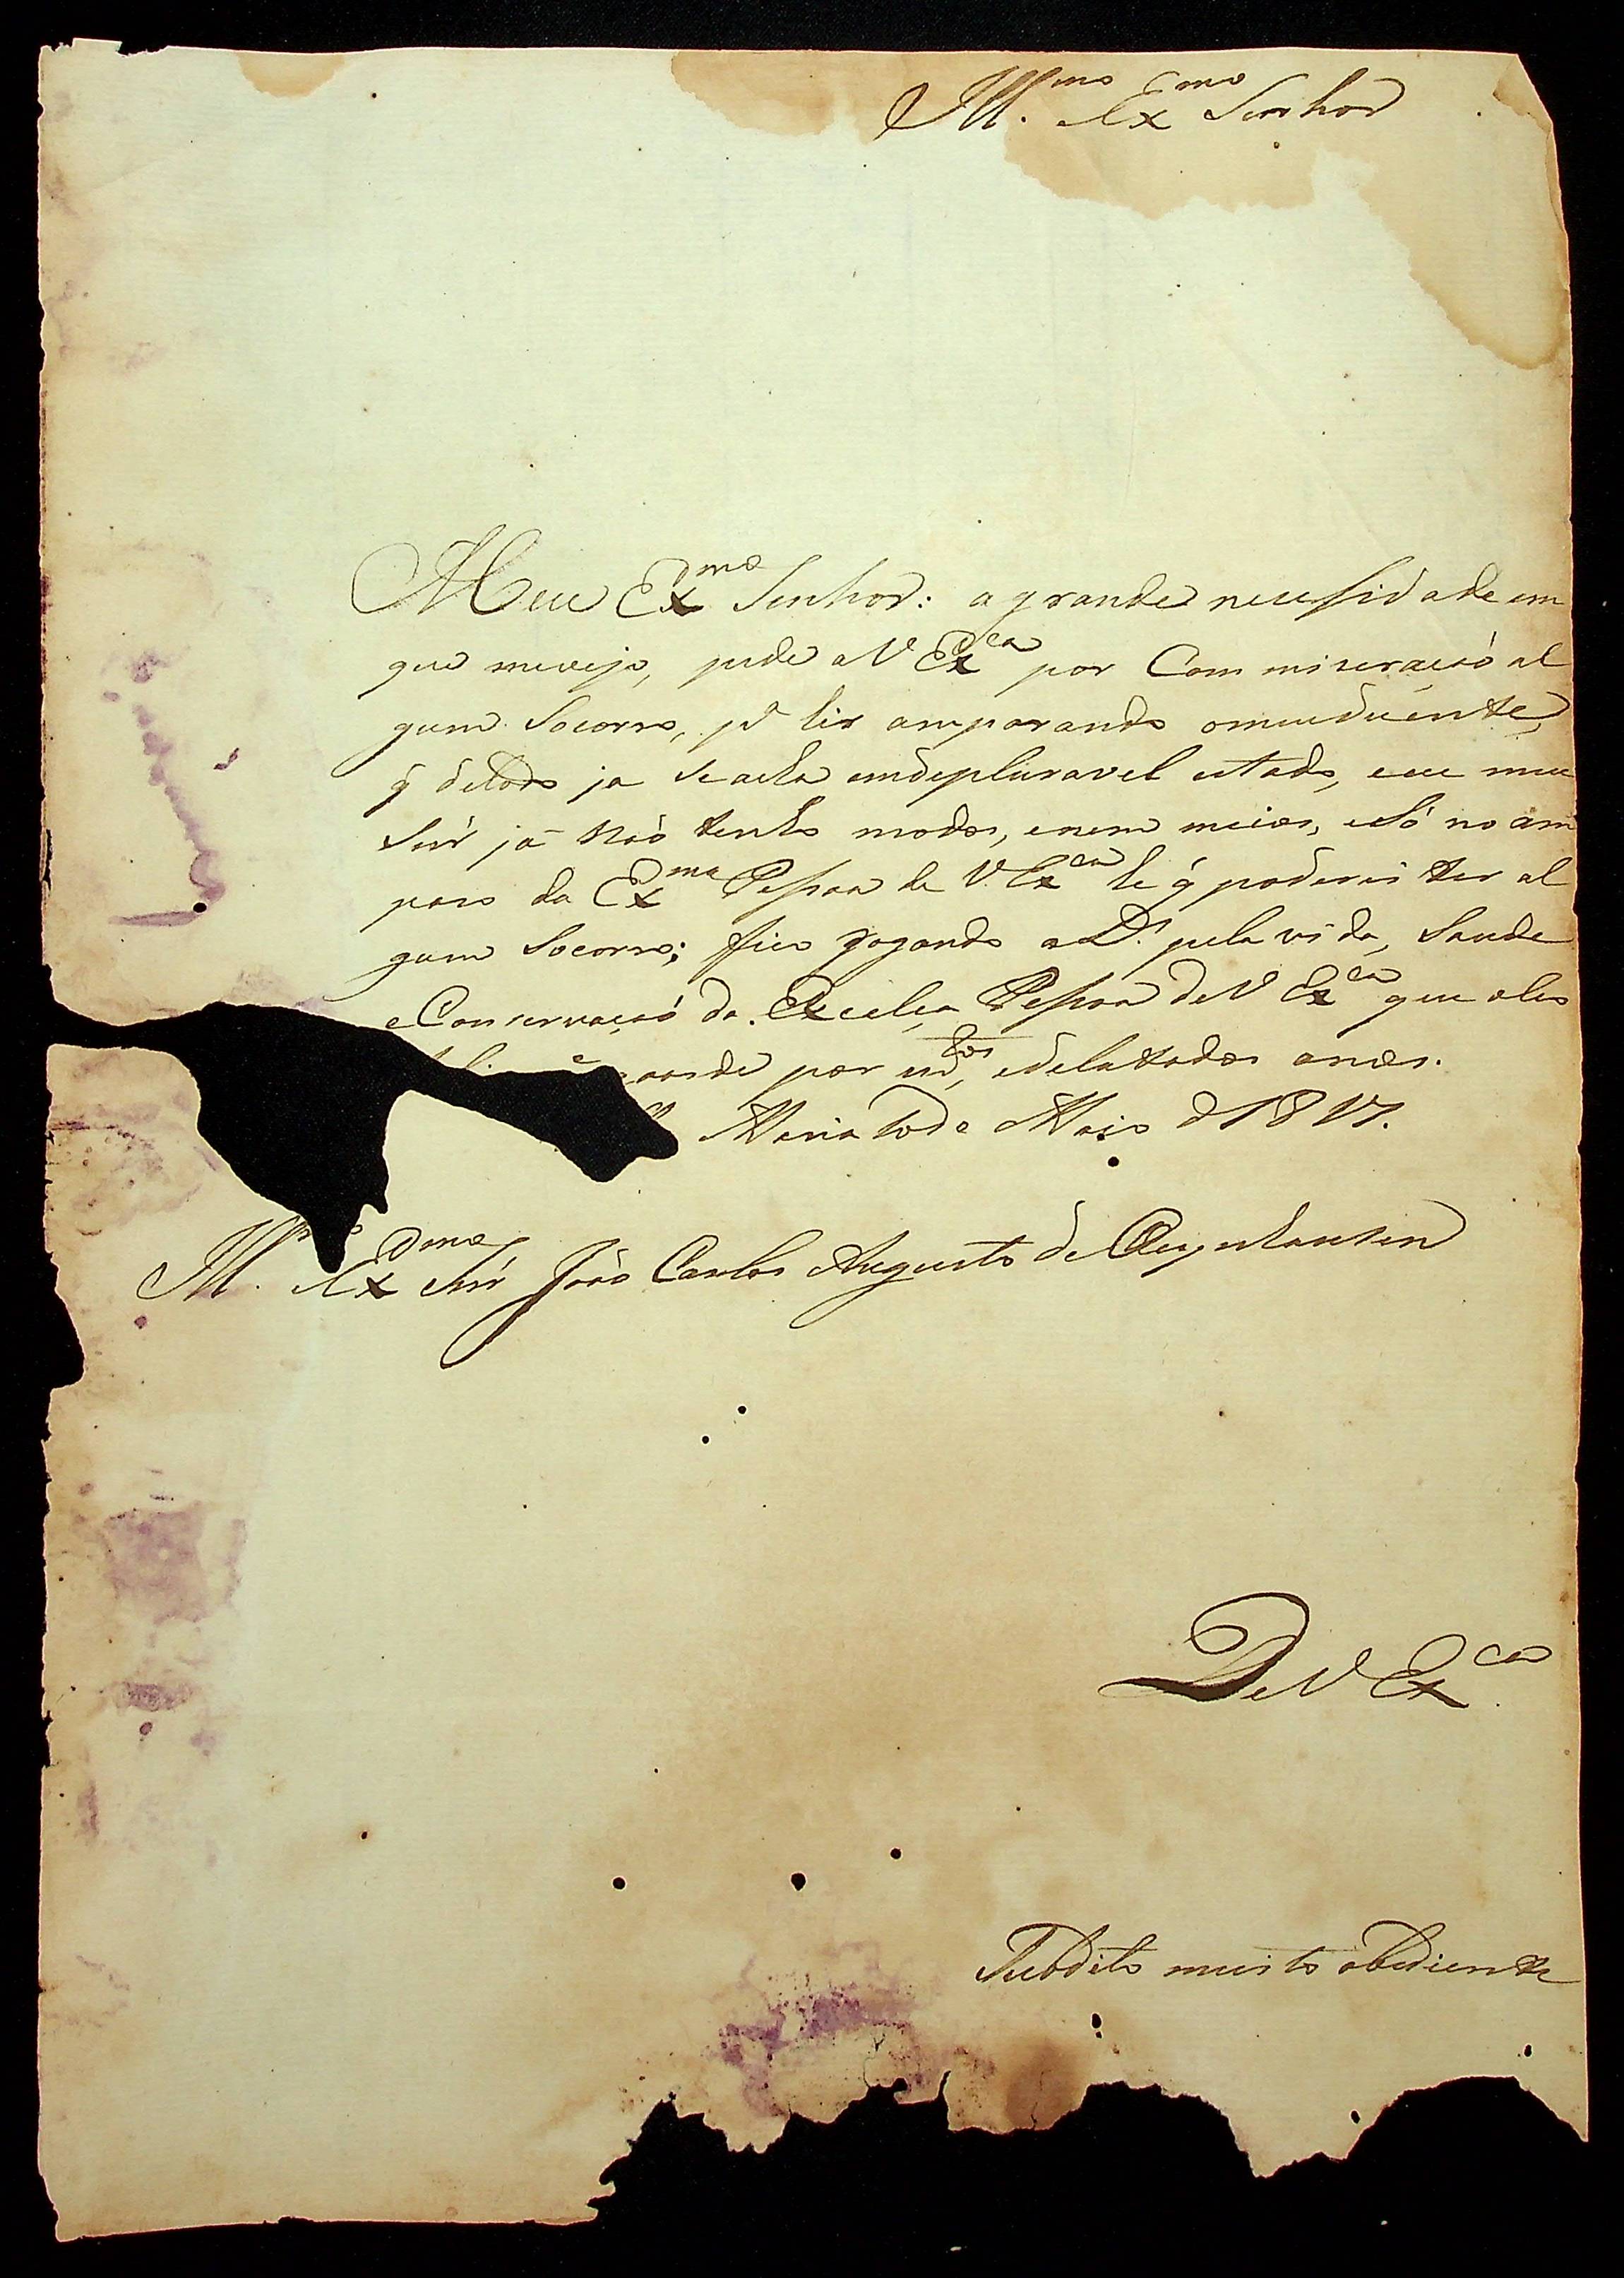 Ill.mo Ex.mo Senhor
Meu Ex.mo Senhor: a grande necessidade em
que mevejo, pede a V Ex.ca por Commiseracaó al
gum Socorro, pª hir amparando omeu duente,
q̃ detodo ja Seacha emdepluravel estado, eeu meu
Snr̃ já Naó tenho modos, enem meios, eSó no am
paro da Ex.ma Pessoa de V. Ex.ca he q̃ poderei ter al
gum Socorro; fico rogando a D.s pela vida, Saude
eConservacaó da Excelça Pessoa deV Ex.ca que o Ceo
guarde por edelatados anos.
Maria de Maio d 1817.
Ill. Ex.mo Snr̃ João Carlos Augusto de Oeynhausen
DeV Ex.ca
Subdito muito obediente